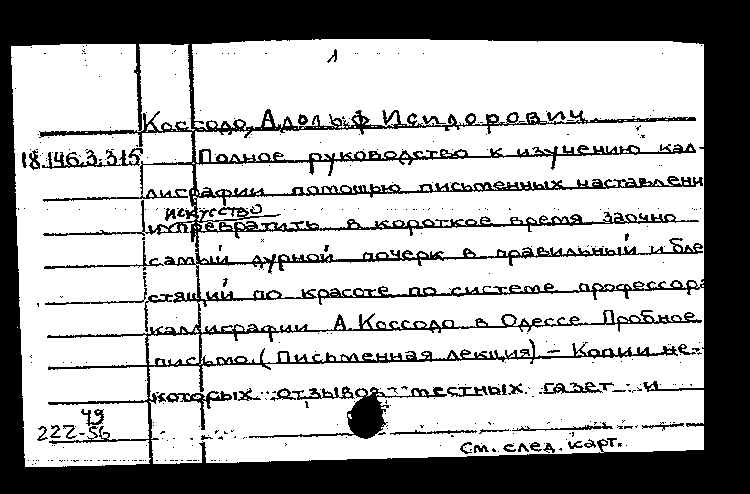 1
Коссодо, Адольф Исидорович
18.146.3.315 Полное руководство к изучению кал-
лиграфии помощью письменных наставлений
искусство
превратить в короткое время заочно
самый дурной почерк в правильный и бле
стящий по красоте по системе профессора
каллиграфии А. Коссодо в Одессе. Пробное
письмо. (Письменная лекция) – Копии не-
которых отзывов местных газет и
49
222-56
См. след. карт.